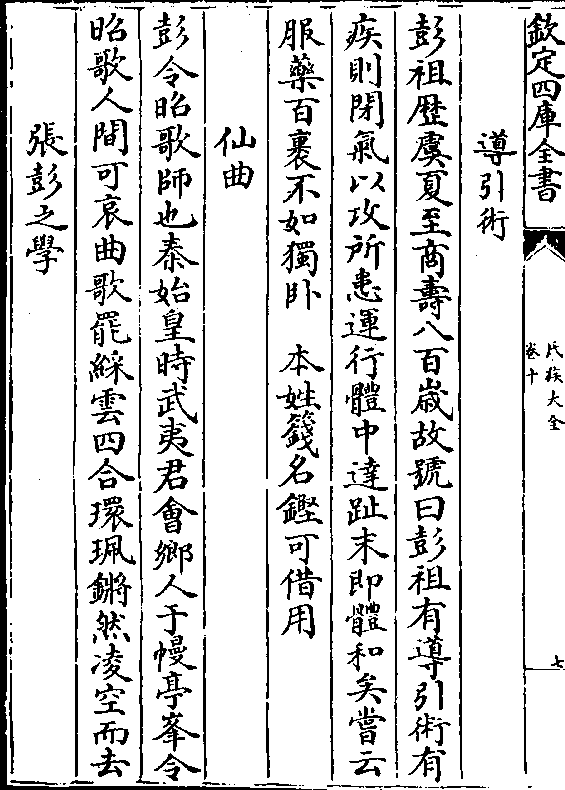 欽定四庫全書
氏族大全
卷十
七
導引術
彭祖歴虞夏至商壽八百歲故號曰彭祖有導引術有
疾則閉氣以攻所患運行體中達趾末即體和矣嘗云
服藥百裹不如獨卧　本姓籛名鏗可借用
仙曲
彭令昭歌師也秦始皇時武夷君會鄉人于幔亭峯令
昭歌人間可哀曲歌罷綵雲四合環珮鏘然凌空而去
張彭之學